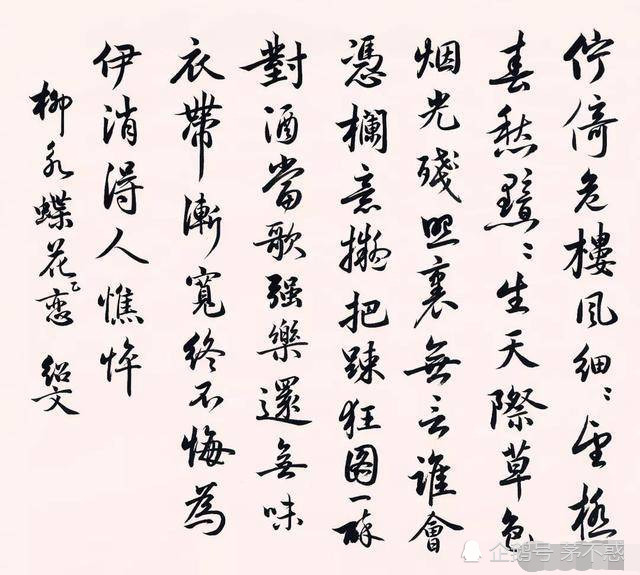 佇倚危樓風細〻望極
春愁黯〻生天際草色
烟光殘照裏無言誰會
憑欄意擬把踈狂圖一醉
對酒當歌强樂還無味
衣帶漸寬終不悔為
伊消得人憔悴
柳永蝶花戀 紹文
企鹅号 茅不惑